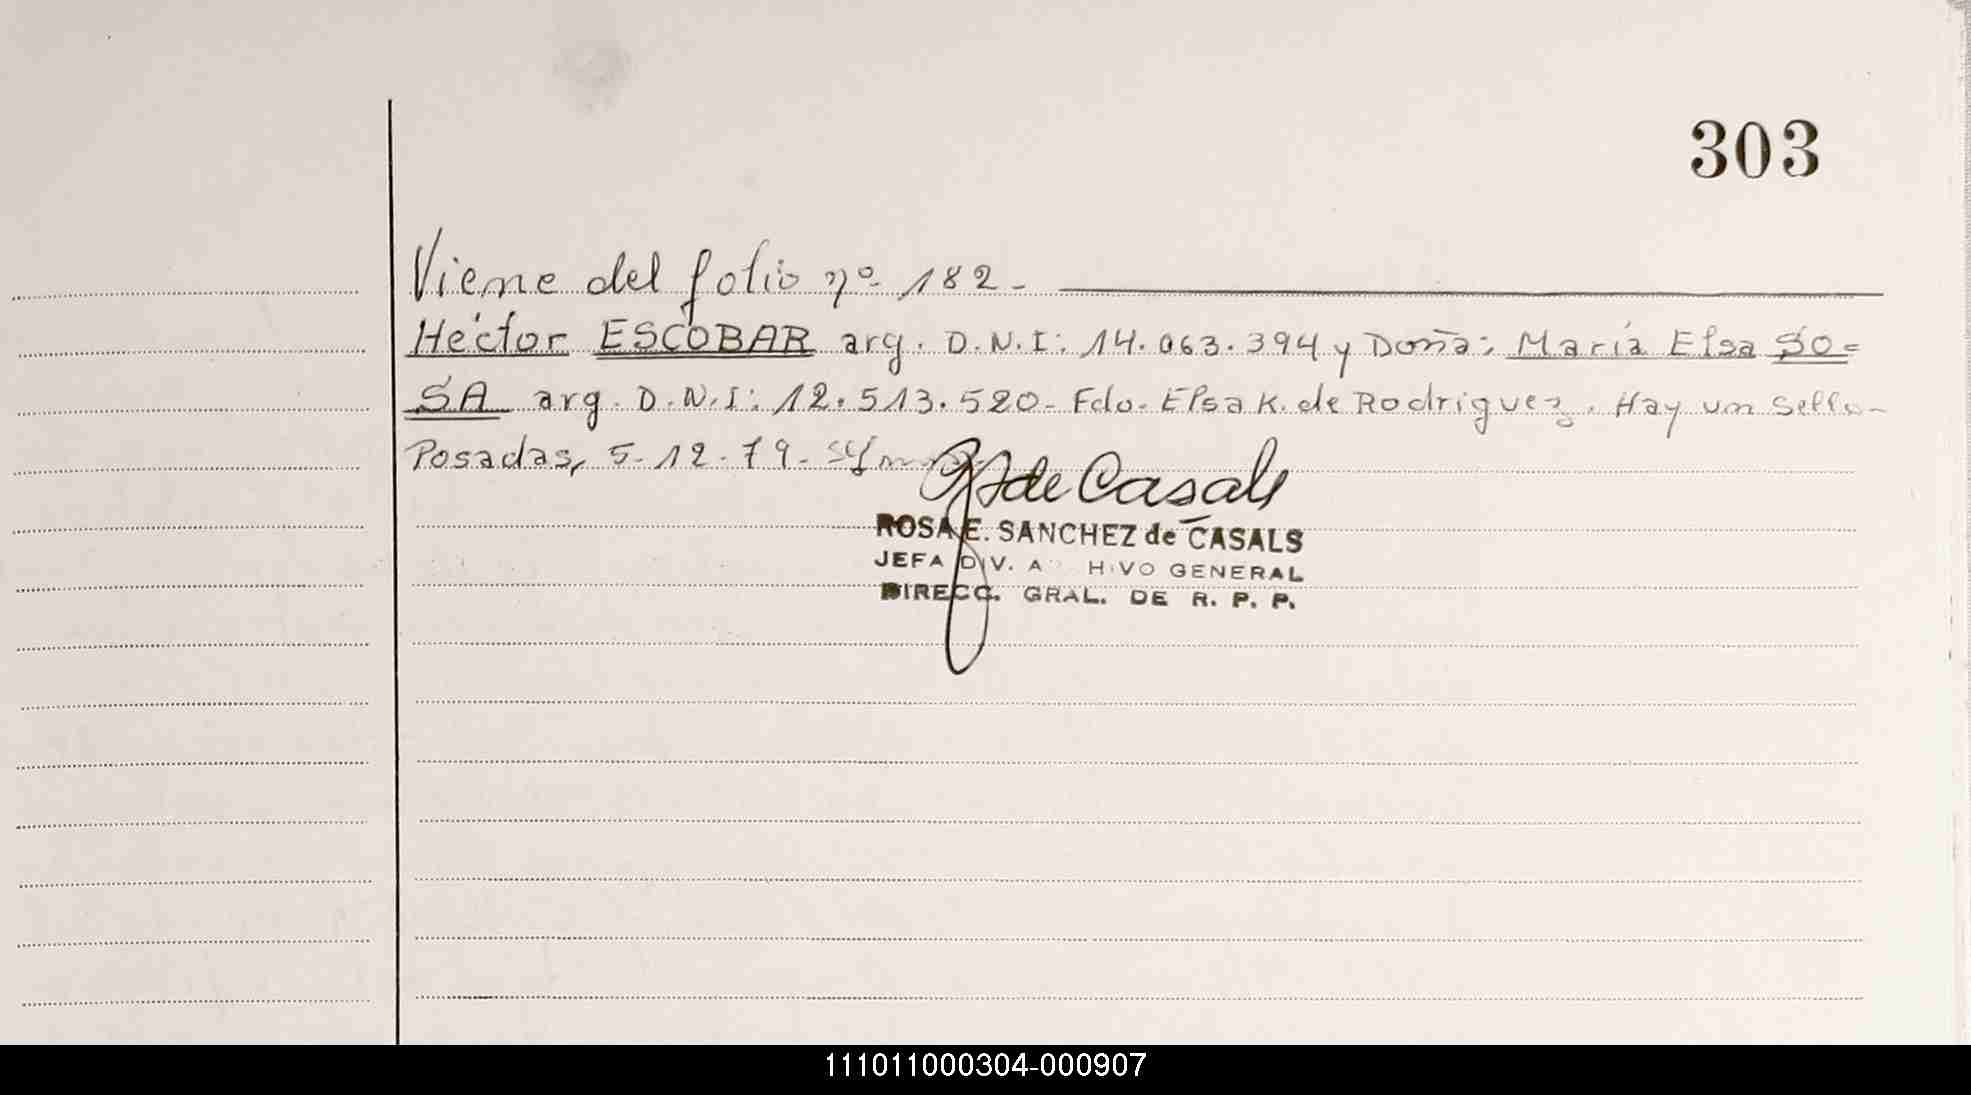 303
Viene del folio nº 182.-
Héctor ESCOBAR arg. D.N.I: 14.063.394 y Doña: María Elsa SO=
SA arg. D.N.I: 12.513.520- Fdo. Elsa K. de Rodriguez. Hay un sello-
Posadas, 5-12-79-
de Casals
ROSA E. SANCHEZ de CASALS
JEFA DIV. A HIVO GENERAL
DIRECC. GRAL. DE R. P. P.
111011000304-000907